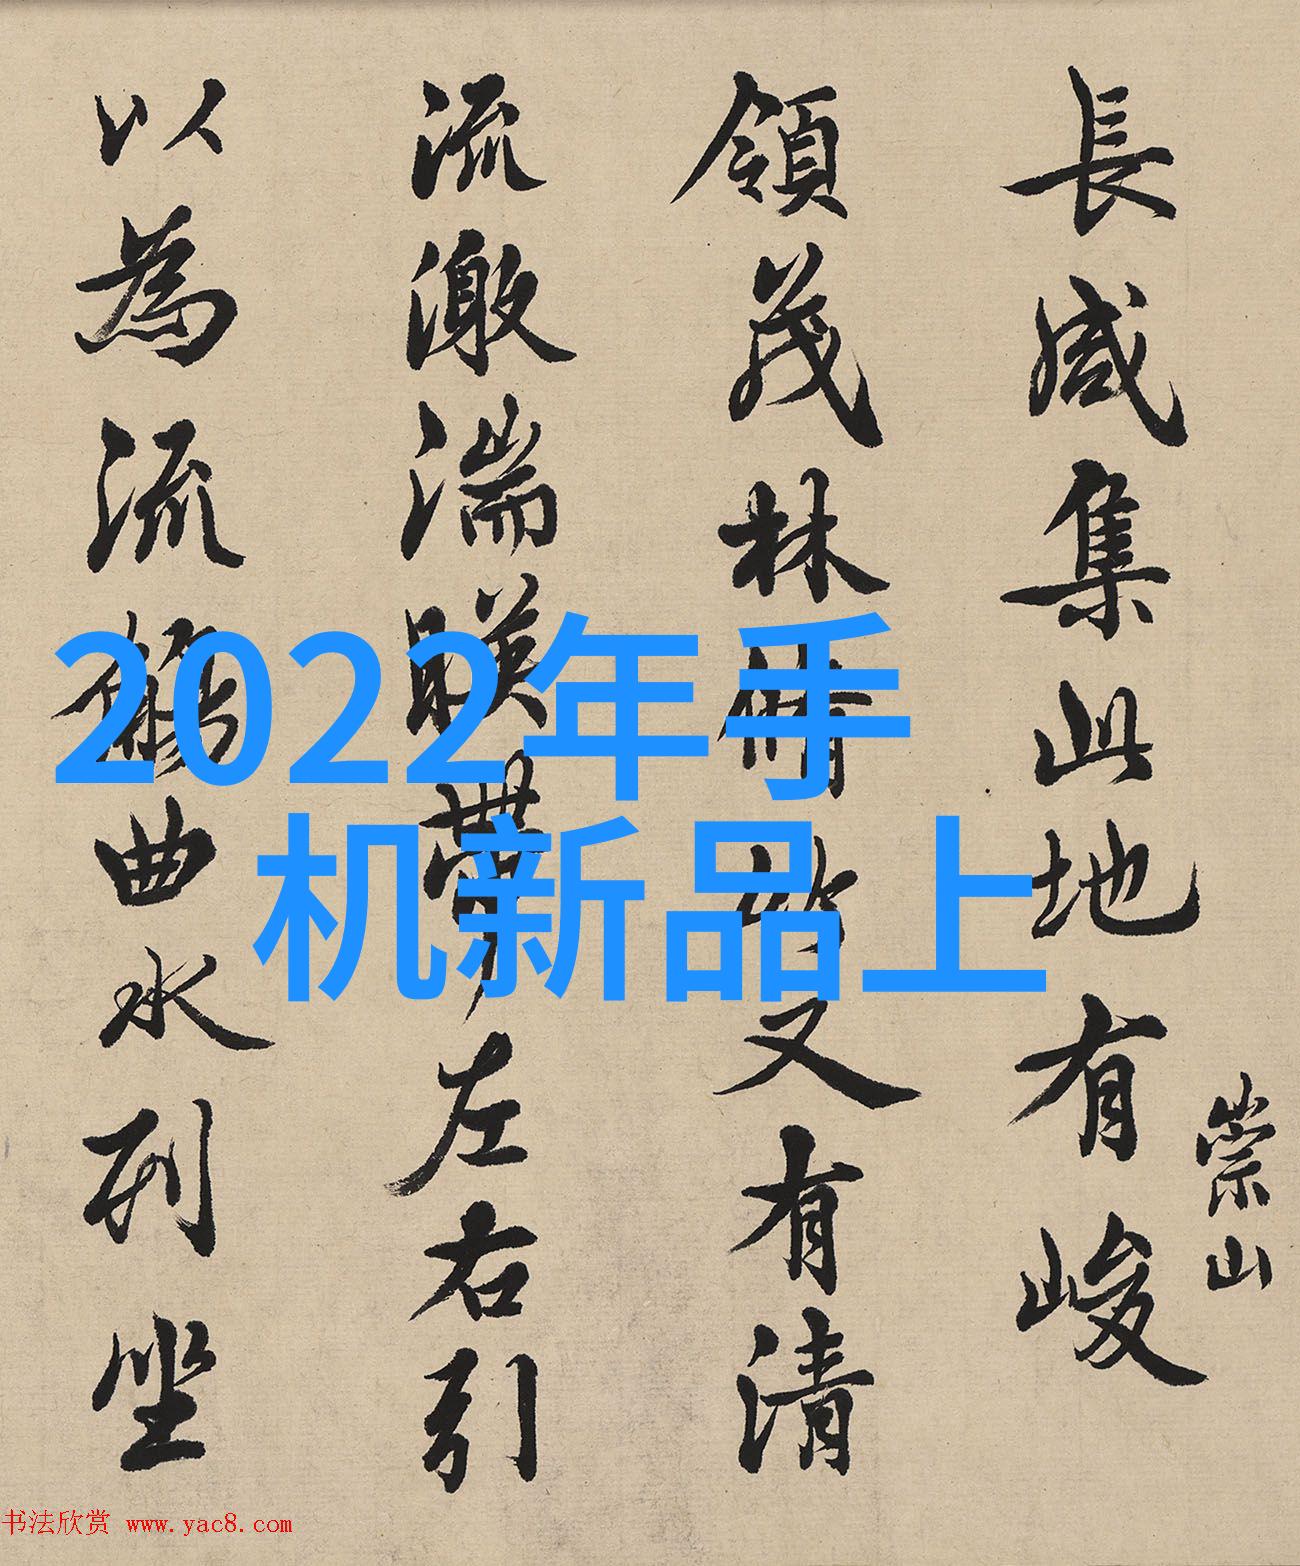 長咸集此地有峻
崇山
領茂林脩竹又有清
流激湍暎帶左右引
以為流觴曲水列坐
2022年手
机新品上
书法欣赏 www.yac8.com